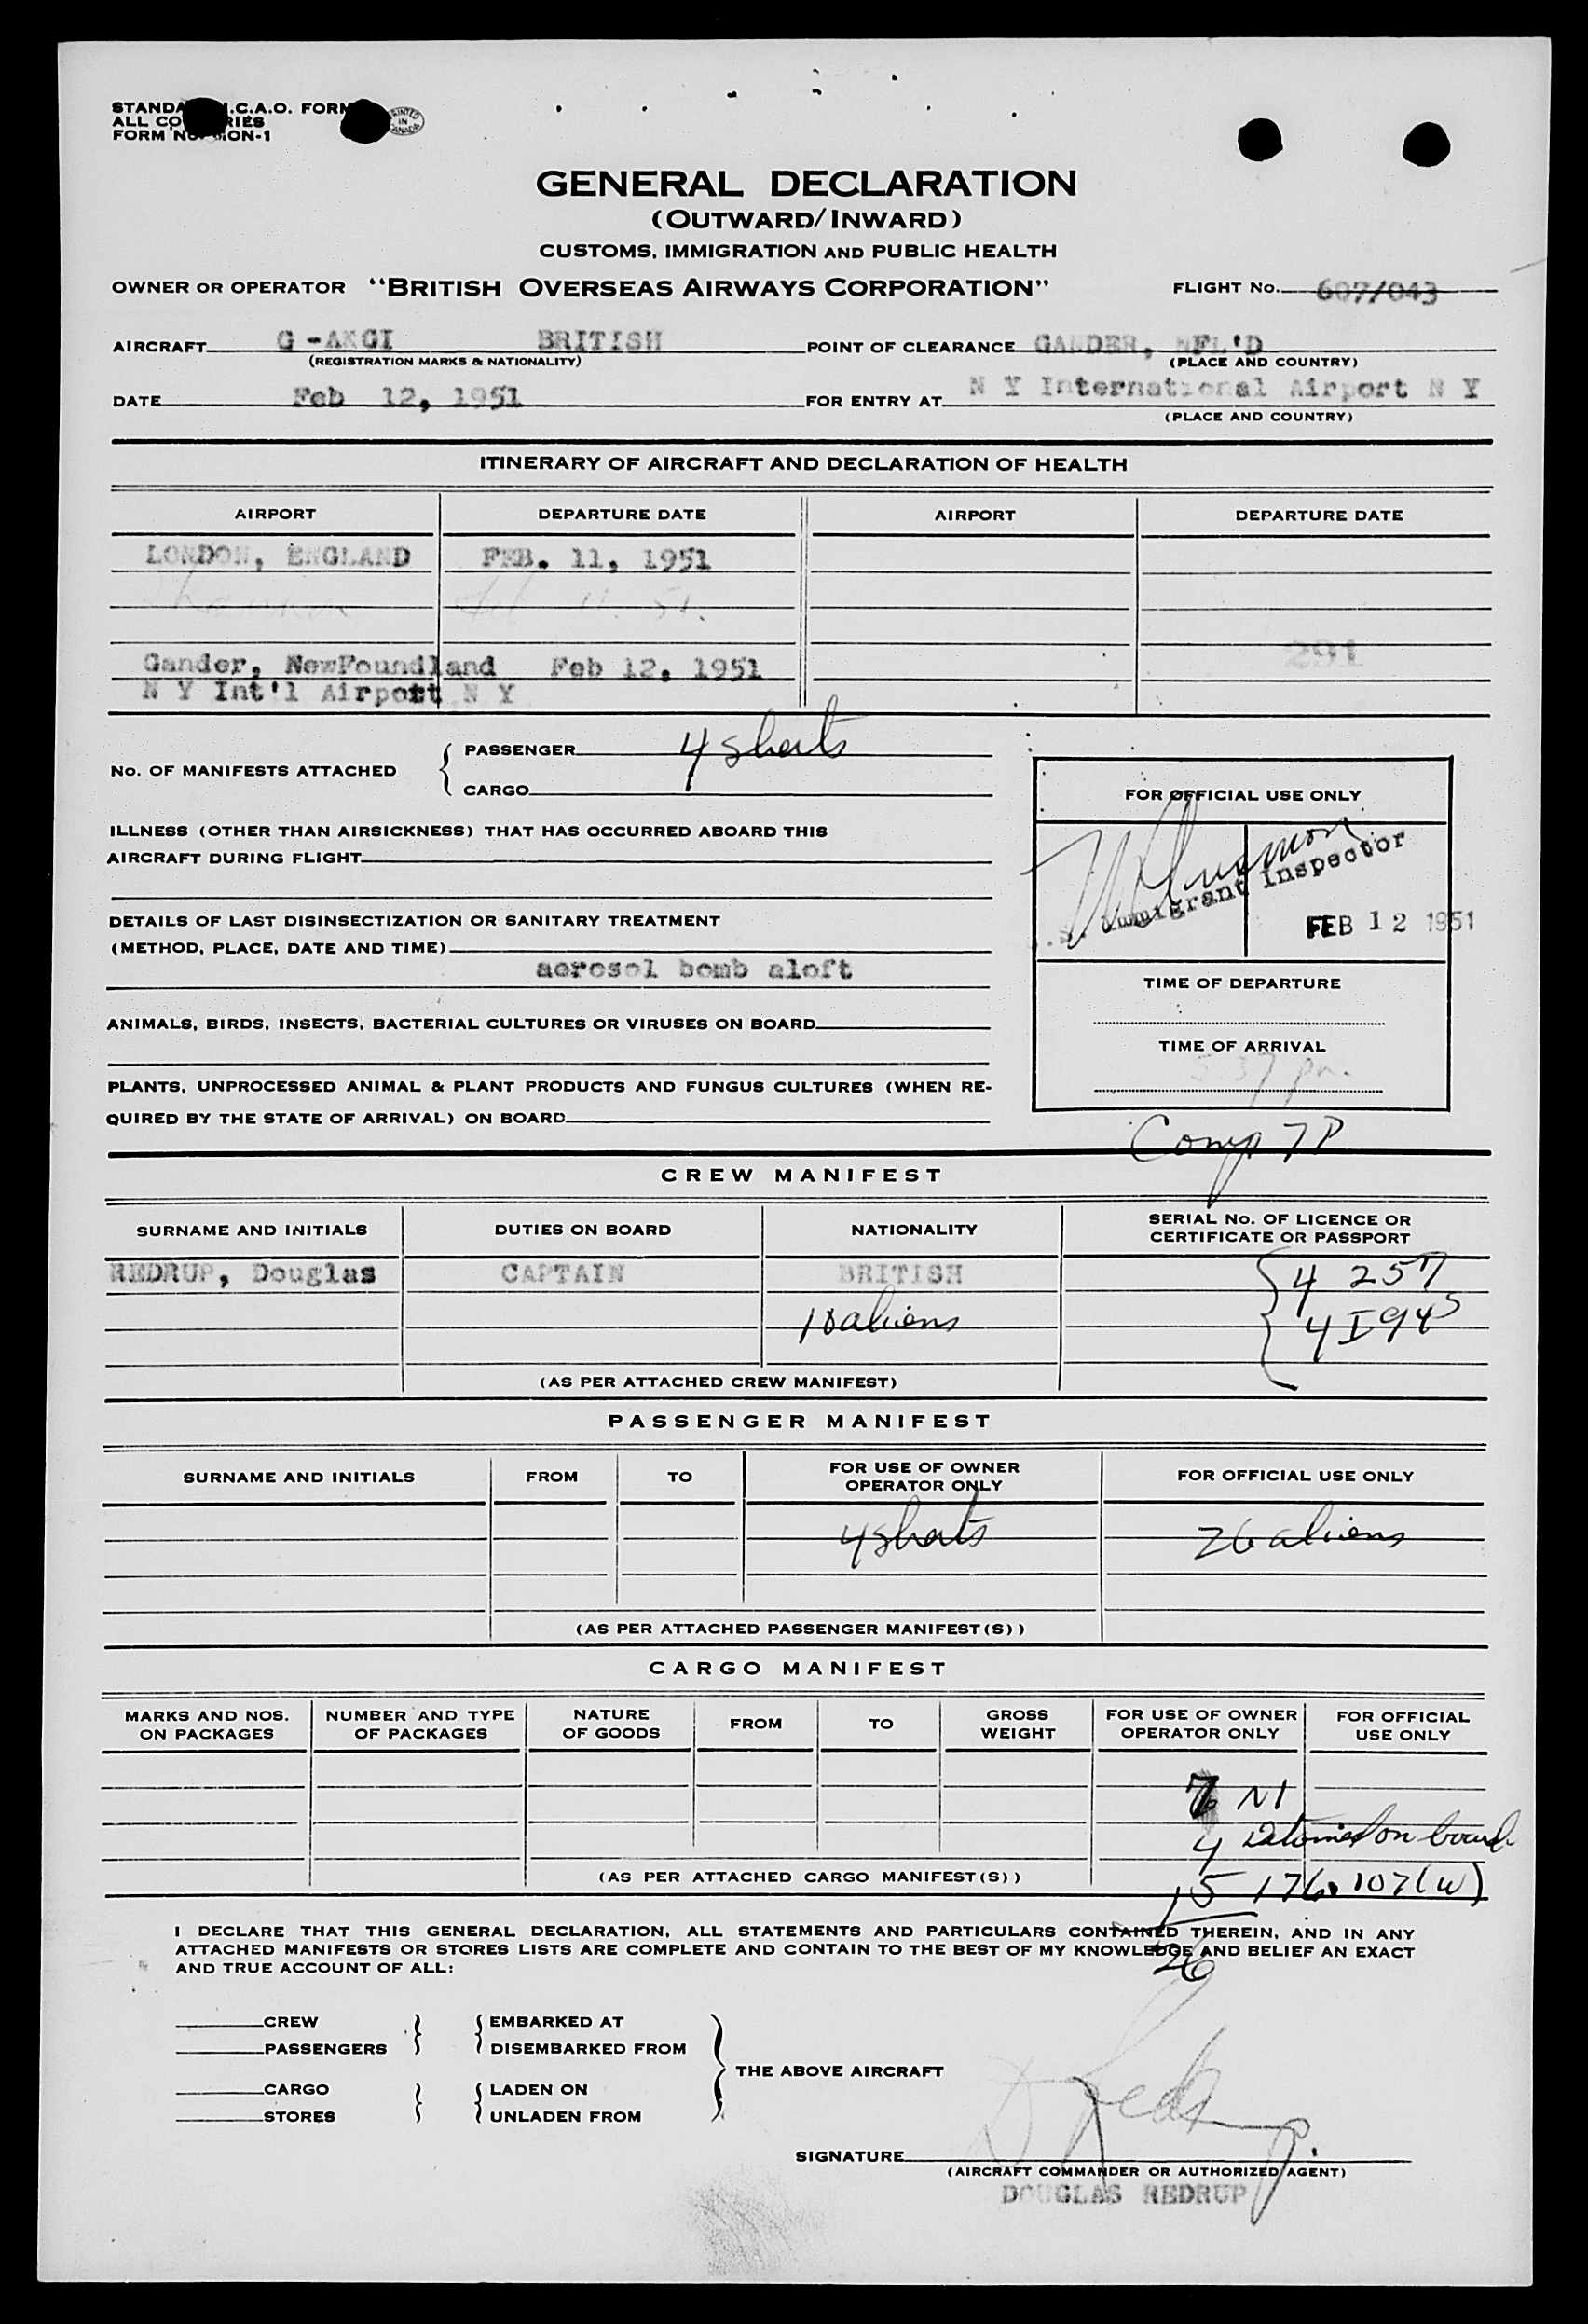 STANDA I.C.A.O. FORM
ALL CO RIES
FORM NO. ION-1
PRINTED IN CANADA
GENERAL DECLARATION
(OUTWARD/INWARD)
CUSTOMS, IMMIGRATION AND PUBLIC HEALTH
OWNER OR OPERATOR "BRITISH OVERSEAS AIRWAYS CORPORATION" FLIGHT No. 607/043
AIRCRAFT G-AKGI BRITISH POINT OF CLEARANCE GANDER, NFL'D
(REGISTRATION MARKS & NATIONALITY) (PLACE AND COUNTRY)
DATE Feb 12, 1951 FOR ENTRY AT N Y International Airport N Y
(PLACE AND COUNTRY)
ITINERARY OF AIRCRAFT AND DECLARATION OF HEALTH
AIRPORT DEPARTURE DATE AIRPORT DEPARTURE DATE
LONDON, ENGLAND FEB. 11, 1951
Shannon Feb 11. 51.
Gander, NewFoundland Feb 12, 1951 291
N Y Int'l Airport N Y
No. OF MANIFESTS ATTACHED { PASSENGER 4 sheets
CARGO
ILLNESS (OTHER THAN AIRSICKNESS) THAT HAS OCCURRED ABOARD THIS
AIRCRAFT DURING FLIGHT
DETAILS OF LAST DISINSECTIZATION OR SANITARY TREATMENT
(METHOD, PLACE, DATE AND TIME)
aerosol bomb aloft
ANIMALS, BIRDS, INSECTS, BACTERIAL CULTURES OR VIRUSES ON BOARD
PLANTS, UNPROCESSED ANIMAL & PLANT PRODUCTS AND FUNGUS CULTURES (WHEN RE-
QUIRED BY THE STATE OF ARRIVAL) ON BOARD
FOR OFFICIAL USE ONLY
Immigrant Inspector
FEB 12 1951
TIME OF DEPARTURE
TIME OF ARRIVAL
5 37 pm.
Comp 7 P
CREW MANIFEST
SURNAME AND INITIALS DUTIES ON BOARD NATIONALITY SERIAL No. OF LICENCE OR
CERTIFICATE OR PASSPORT
REDRUP, Douglas CAPTAIN BRITISH { 4 257
10 aliens 4 I94s
(AS PER ATTACHED CREW MANIFEST)
PASSENGER MANIFEST
SURNAME AND INITIALS FROM TO FOR USE OF OWNER
OPERATOR ONLY FOR OFFICIAL USE ONLY
4 sheets 26 aliens
(AS PER ATTACHED PASSENGER MANIFEST(S))
CARGO MANIFEST
MARKS AND NOS.
ON PACKAGES NUMBER AND TYPE
OF PACKAGES NATURE
OF GOODS FROM TO GROSS
WEIGHT FOR USE OF OWNER
OPERATOR ONLY FOR OFFICIAL
USE ONLY
7 NI
4 on board
(AS PER ATTACHED CARGO MANIFEST(S)) 15 176.107(w)
26
I DECLARE THAT THIS GENERAL DECLARATION, ALL STATEMENTS AND PARTICULARS CONTAINED THEREIN, AND IN ANY
ATTACHED MANIFESTS OR STORES LISTS ARE COMPLETE AND CONTAIN TO THE BEST OF MY KNOWLEDGE AND BELIEF AN EXACT
AND TRUE ACCOUNT OF ALL:
CREW EMBARKED AT
PASSENGERS DISEMBARKED FROM
THE ABOVE AIRCRAFT
CARGO LADEN ON
STORES UNLADEN FROM
SIGNATURE D Redrup.
(AIRCRAFT COMMANDER OR AUTHORIZED AGENT)
DOUGLAS REDRUP